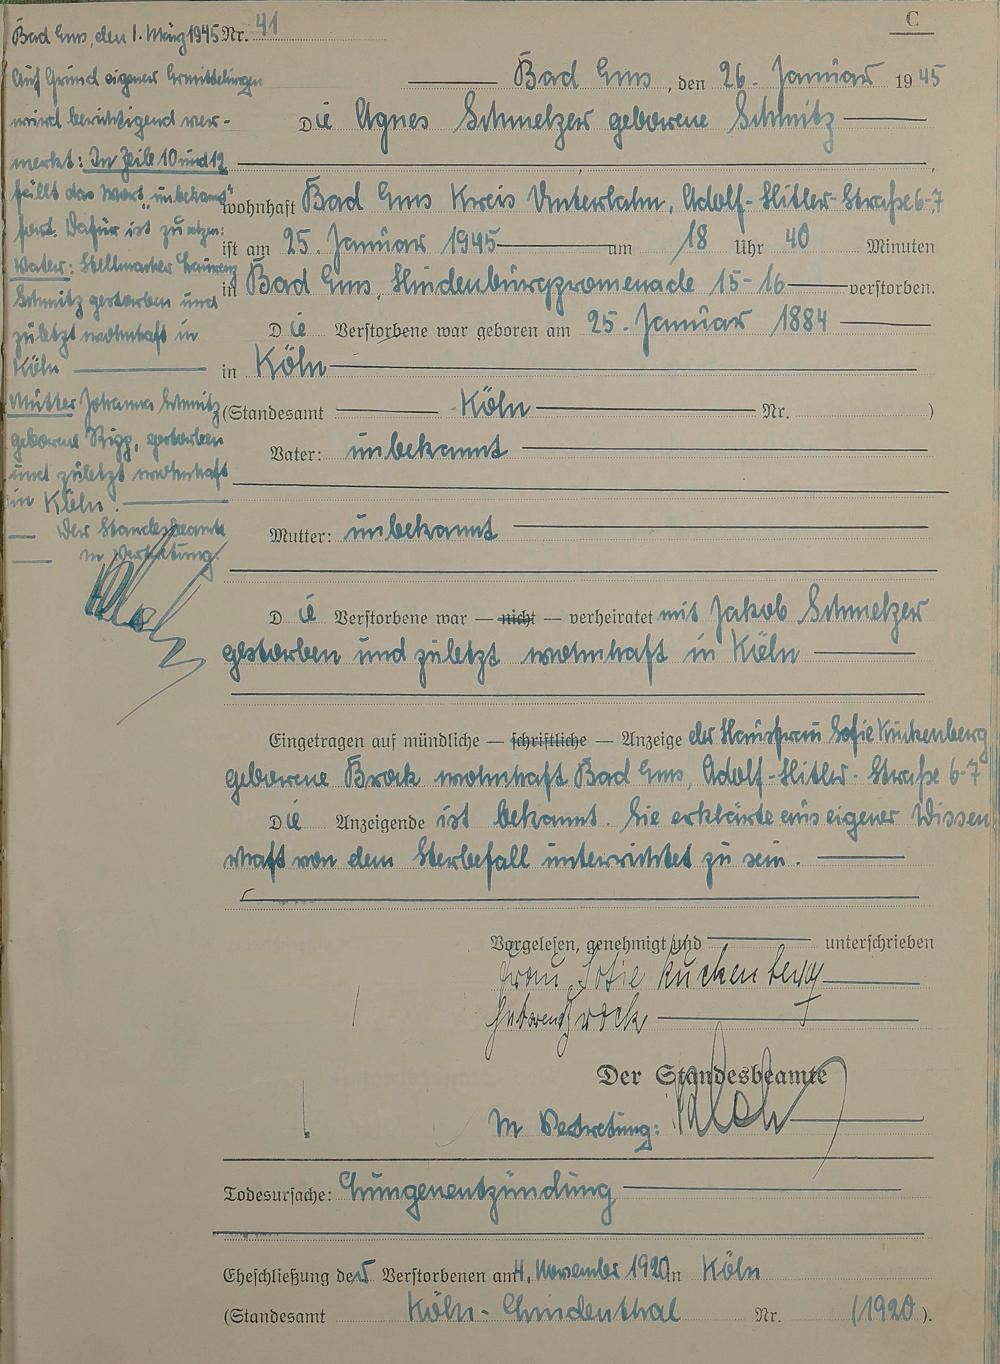 C
Nr. 41
Bad Ems, den 26. Januar 1945
Die Agnes Schmelzer geborene Schmitz
wohnhaft Bad Ems Kreis Unterlahn, Adolf-Hitler-Straße 6-7
ist am 25. Januar 1945 um 18 Uhr 40 Minuten
in Bad Ems, Hindenburgpromenade 15-16 verstorben.
Die Verstorbene war geboren am 25. Januar 1884
in Köln
(Standesamt Köln Nr. )
Vater: unbekannt
Mutter: unbekannt
Die Verstorbene war — nicht — verheiratet mit Jakob Schmelzer
gestorben und zuletzt wohnhaft in Köln
Eingetragen auf mündliche — schriftliche — Anzeige der Hausfrau Sofie Kuckenberg
geborene Brock wohnhaft Bad Ems, Adolf-Hitler-Straße 6-7
Die Anzeigende ist bekannt. Sie erklärte aus eigener Wissen
schaft von dem Sterbefall unterrichtet zu sein.
Vorgelesen, genehmigt und unterschrieben
Frau Sofie Kuckenberg
geborene Brock
Der Standesbeamte
In Vertretung:
Todesursache: Lungenentzündung
Eheschließung der Verstorbenen am 4. November 1920 in Köln
(Standesamt Köln-Lindenthal Nr. (1920).
Bad Ems, den 1. März 1945
Auf Grund eigener Ermittelungen
wird berichtigend ver-
merkt: In Zeile 10 und 12
fällt das Wort "unbekannt"
fort. Dafür ist zu setzen:
Vater: Stellmacher Laurenz
Schmitz gestorben und
zuletzt wohnhaft in
Köln
Mutter Johanna Schmitz
geborene Ripp, gestorben
und zuletzt wohnhaft
in Köln.
Der Standesbeamte
In Vertretung: